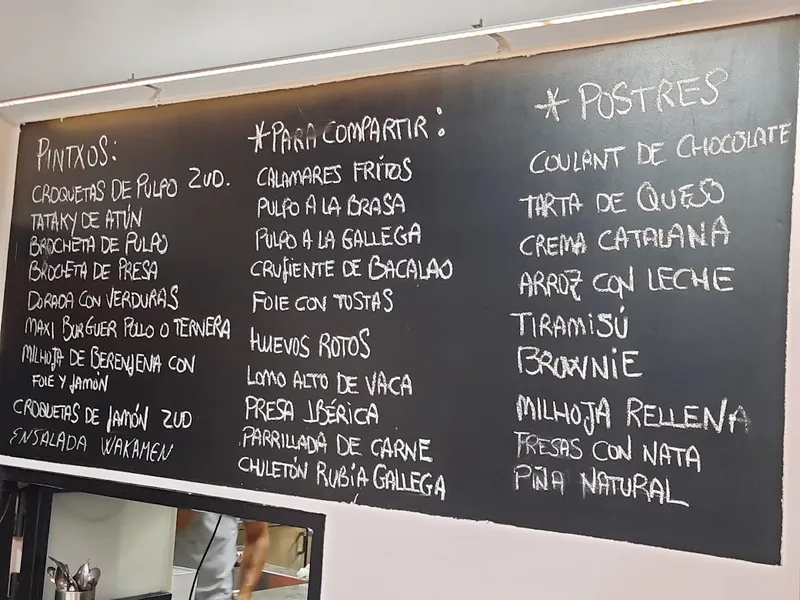 PINTXOS:
CROQUETAS DE PULPO 2UD.
TATAKY DE ATÚN
BROCHETA DE PULPO
BROCHETA DE PRESA
DORADA CON VERDURAS
MAXI BURGUER POLLO O TERNERA
MILHOJA DE BERENJENA CON
FOIE Y JAMÓN
CROQUETAS DE JAMÓN 2UD
ENSALADA WAKAMEN
*PARA COMPARTIR:
CALAMARES FRITOS
PULPO A LA BRASA
PULPO A LA GALLEGA
CRUJIENTE DE BACALAO
FOIE CON TOSTAS
HUEVOS ROTOS
LOMO ALTO DE VACA
PRESA IBÉRICA
PARRILLADA DE CARNE
CHULETÓN RUBIA GALLEGA
*POSTRES
COULANT DE CHOCOLATE
TARTA DE QUESO
CREMA CATALANA
ARROZ CON LECHE
TIRAMISÚ
BROWNIE
MILHOJA RELLENA
FRESAS CON NATA
PIÑA NATURAL